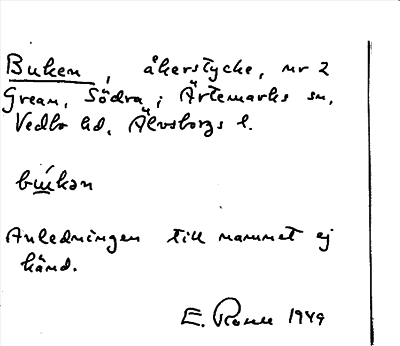 Buken, åkerstycke, nr 2
Grean, Södra, i Ärtemarks sn,
Vedbo hd, Älvsborgs l.
bú̲kən
Anledningen till namnet ej
känd.
E. 1949